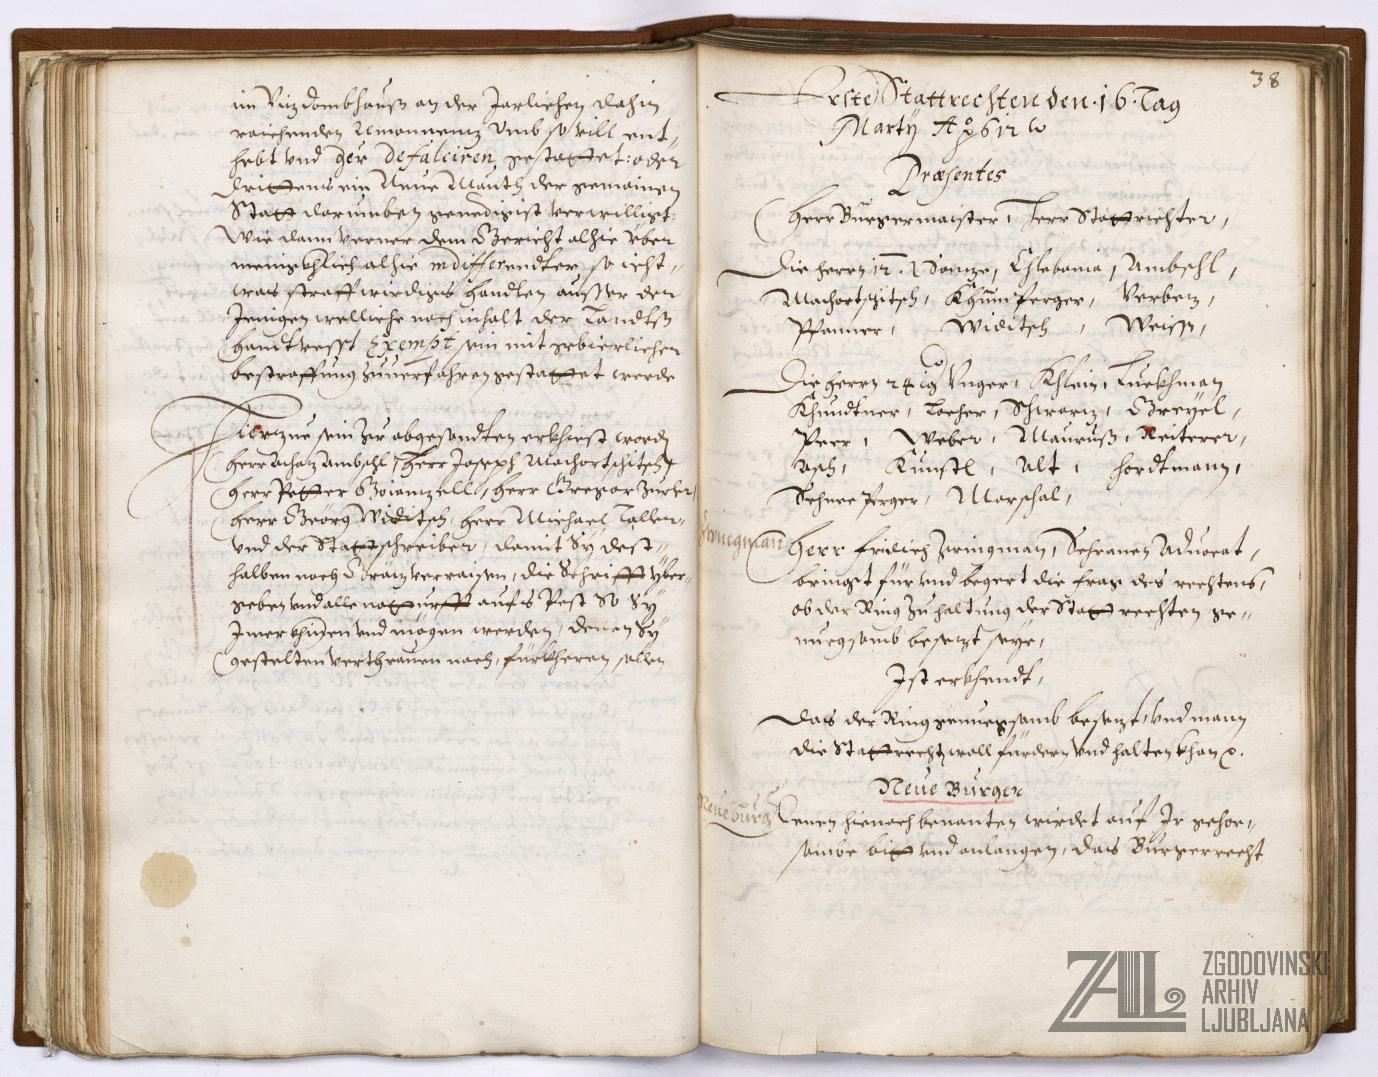 im Vizdombhauß an der Jarlichen dahin
raichenden umb souill ent„
hebt und Ihr defalciren gestattet: oder
Drittens ein Neue Mauth der gemainen
Statt darumben genedigist verwilligt:
Wie dann verner dem Gericht alhie über
menigkhlich alhie indifferendter so icht„
was straffwirdigs handlen ausser der
Jenigen welliche nach inhalt der Landtß
handtvesst Exempt sein mit gebierlicher
bestraffung zuuerfahren gestattet werde
Hierzue sein zu abgesandten erkhiest worden
herr Achatz Ambschl, herr Joseph Machortschitsch
herr Petter herr Gregor
herr Geörg Widitsch, herr Michael
und der Stattschreiber, damit Sy dest„
halben nach Grätz verraisen, die Schrifft yber„
geben und alle notturfft aufs Pest So Sy
Jmer khünden und mögen werden, denen Sy
gestelten verthrauen nach, fürkheren sollen
38
Erste Stattrechten den 16 Tag
Marty Aº 612
Præsentes
Herr Burgermaister, Herr Stattrichter,
Die herrn 12. Ambschl,
Machortschitsch, Khumperger, Verbetz,
Pfanner, Widitsch, Weiss,
Die herrn 24ig Unger, Khlein, Luckhman
Khundtner, Locher, Schwartz, Greyel,
Peer, Weber, Mauruß, Reiterer,
Asch, Kunstl, Alt, Hordtmann,
Schneeperger, Marschal,
Zwingman
Herr fridrich Zwingman, Schranen Aduocat,
bringt für und begert die frag des rechtens,
ob der Ring zu haltung der Stattrechten ge„
nuegsamb besetzt seye,
Ist erkhendt,
Das der Ring genuegsamb besetzt, und mann
die Stattrecht woll fürdern und halten khan
Neue Burger
Neue burg
Denen hienach benanten wirdet auf Ir gehor„
sambe bitt und anlangen, das Burgerrecht
ZAL
ZGODOVINSKI
ARHIV
LJUBLJANA